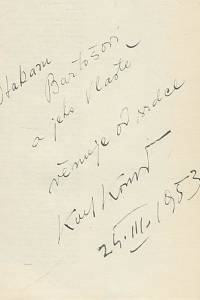 Otakaru
Bartošovi
a jeho Vlastě
věnuje od srdce
Karel
25. III. 1953